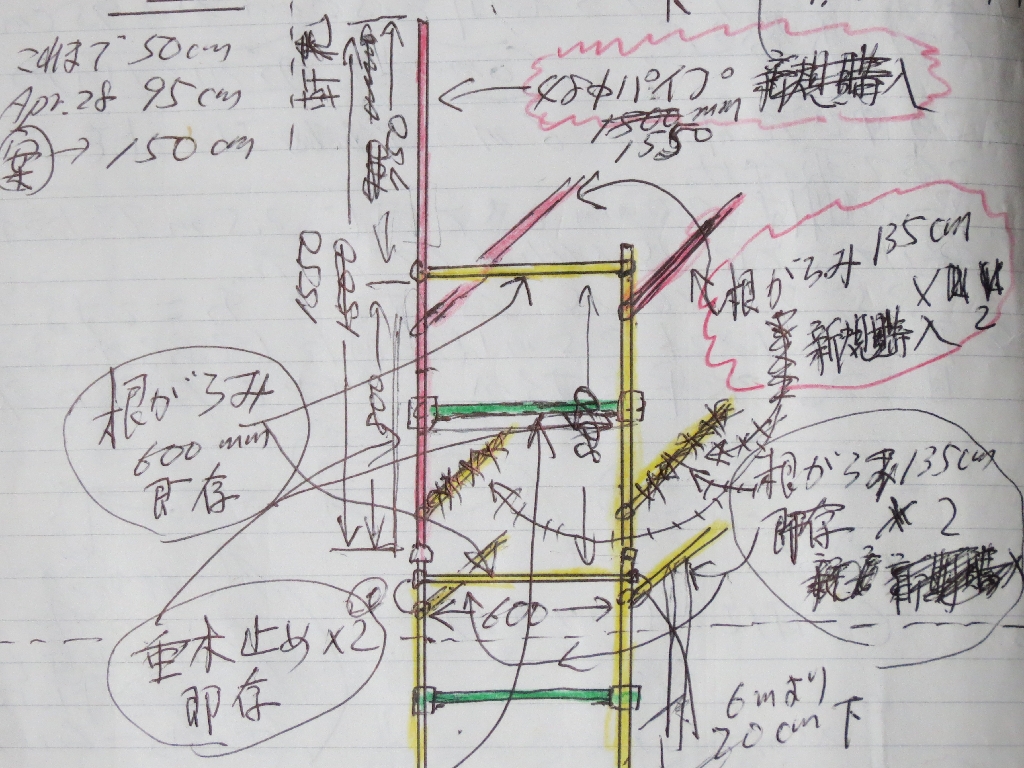 これまで 50cm
Apr.28 95cm
案→ 150cm
48φパイプ 新規購入
1500 mm
1550
根がらみ 135cm
×2
新規購入
根がらみ
600 mm
即存
800
根がらみ135cm
即存 × 2
600
垂木止め×2
即存
6mより
20cm下